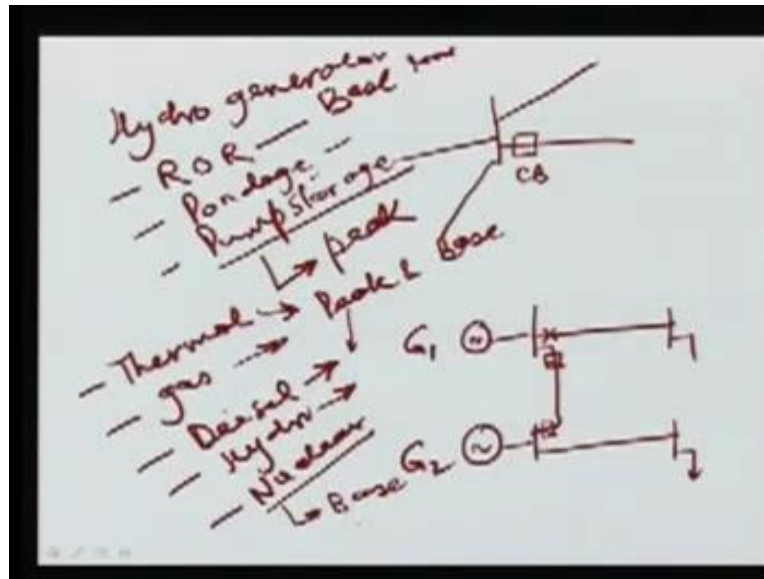 Hydro generator
- ROR — Base
- Pondage -
- Pump Storage
CB
↳ peak
- Thermal → Peak & Base
- gas →
- Deisel →
- Hydro →
- Nuclear
↳ Base
G1
G2